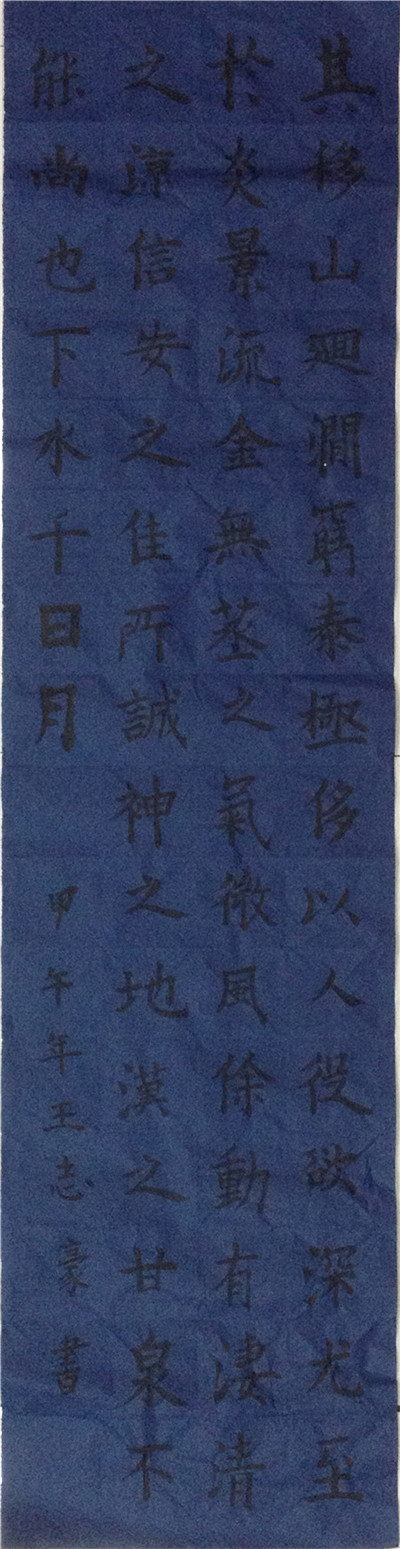 其移山廻澗窮泰極侈以人役欲深尤至
於炎景流金無蒸之氣微風徐動有淒清
之涼信安之佳所誠神之地漢之甘泉不
能尚也下水千日月
甲午年王志豪書